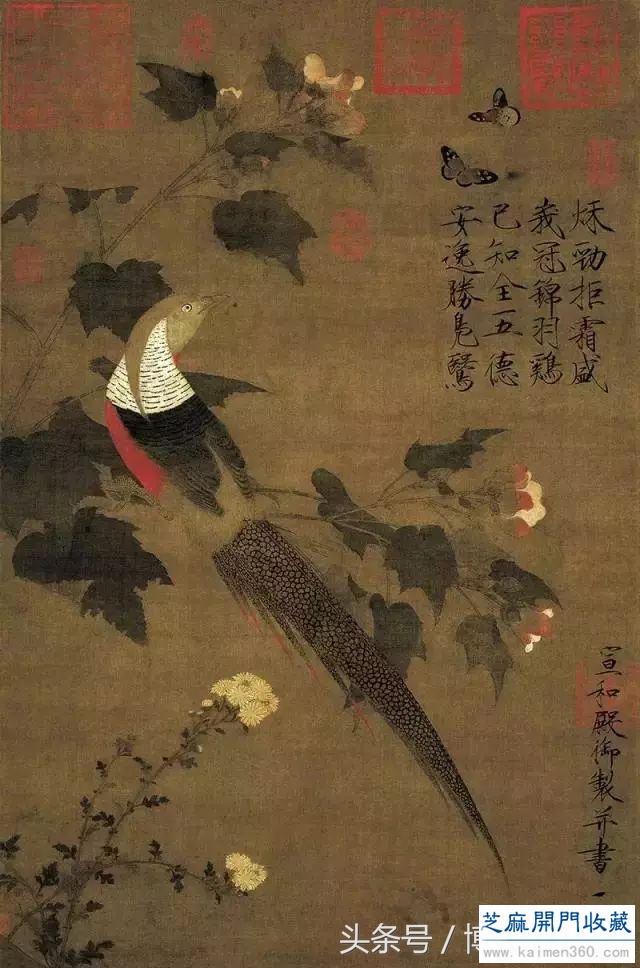 秌勁拒霜盛
峩冠錦羽鷄
已知全五德
安逸勝鳧鷖
宣和殿御製并書
头条号 / 博
芝麻開門收藏
www.kaimen360.com